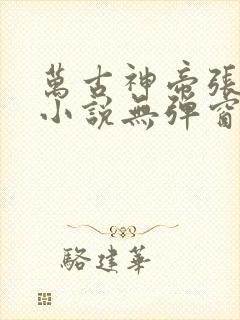 萬古神帝張
小說無彈窗
駱建華